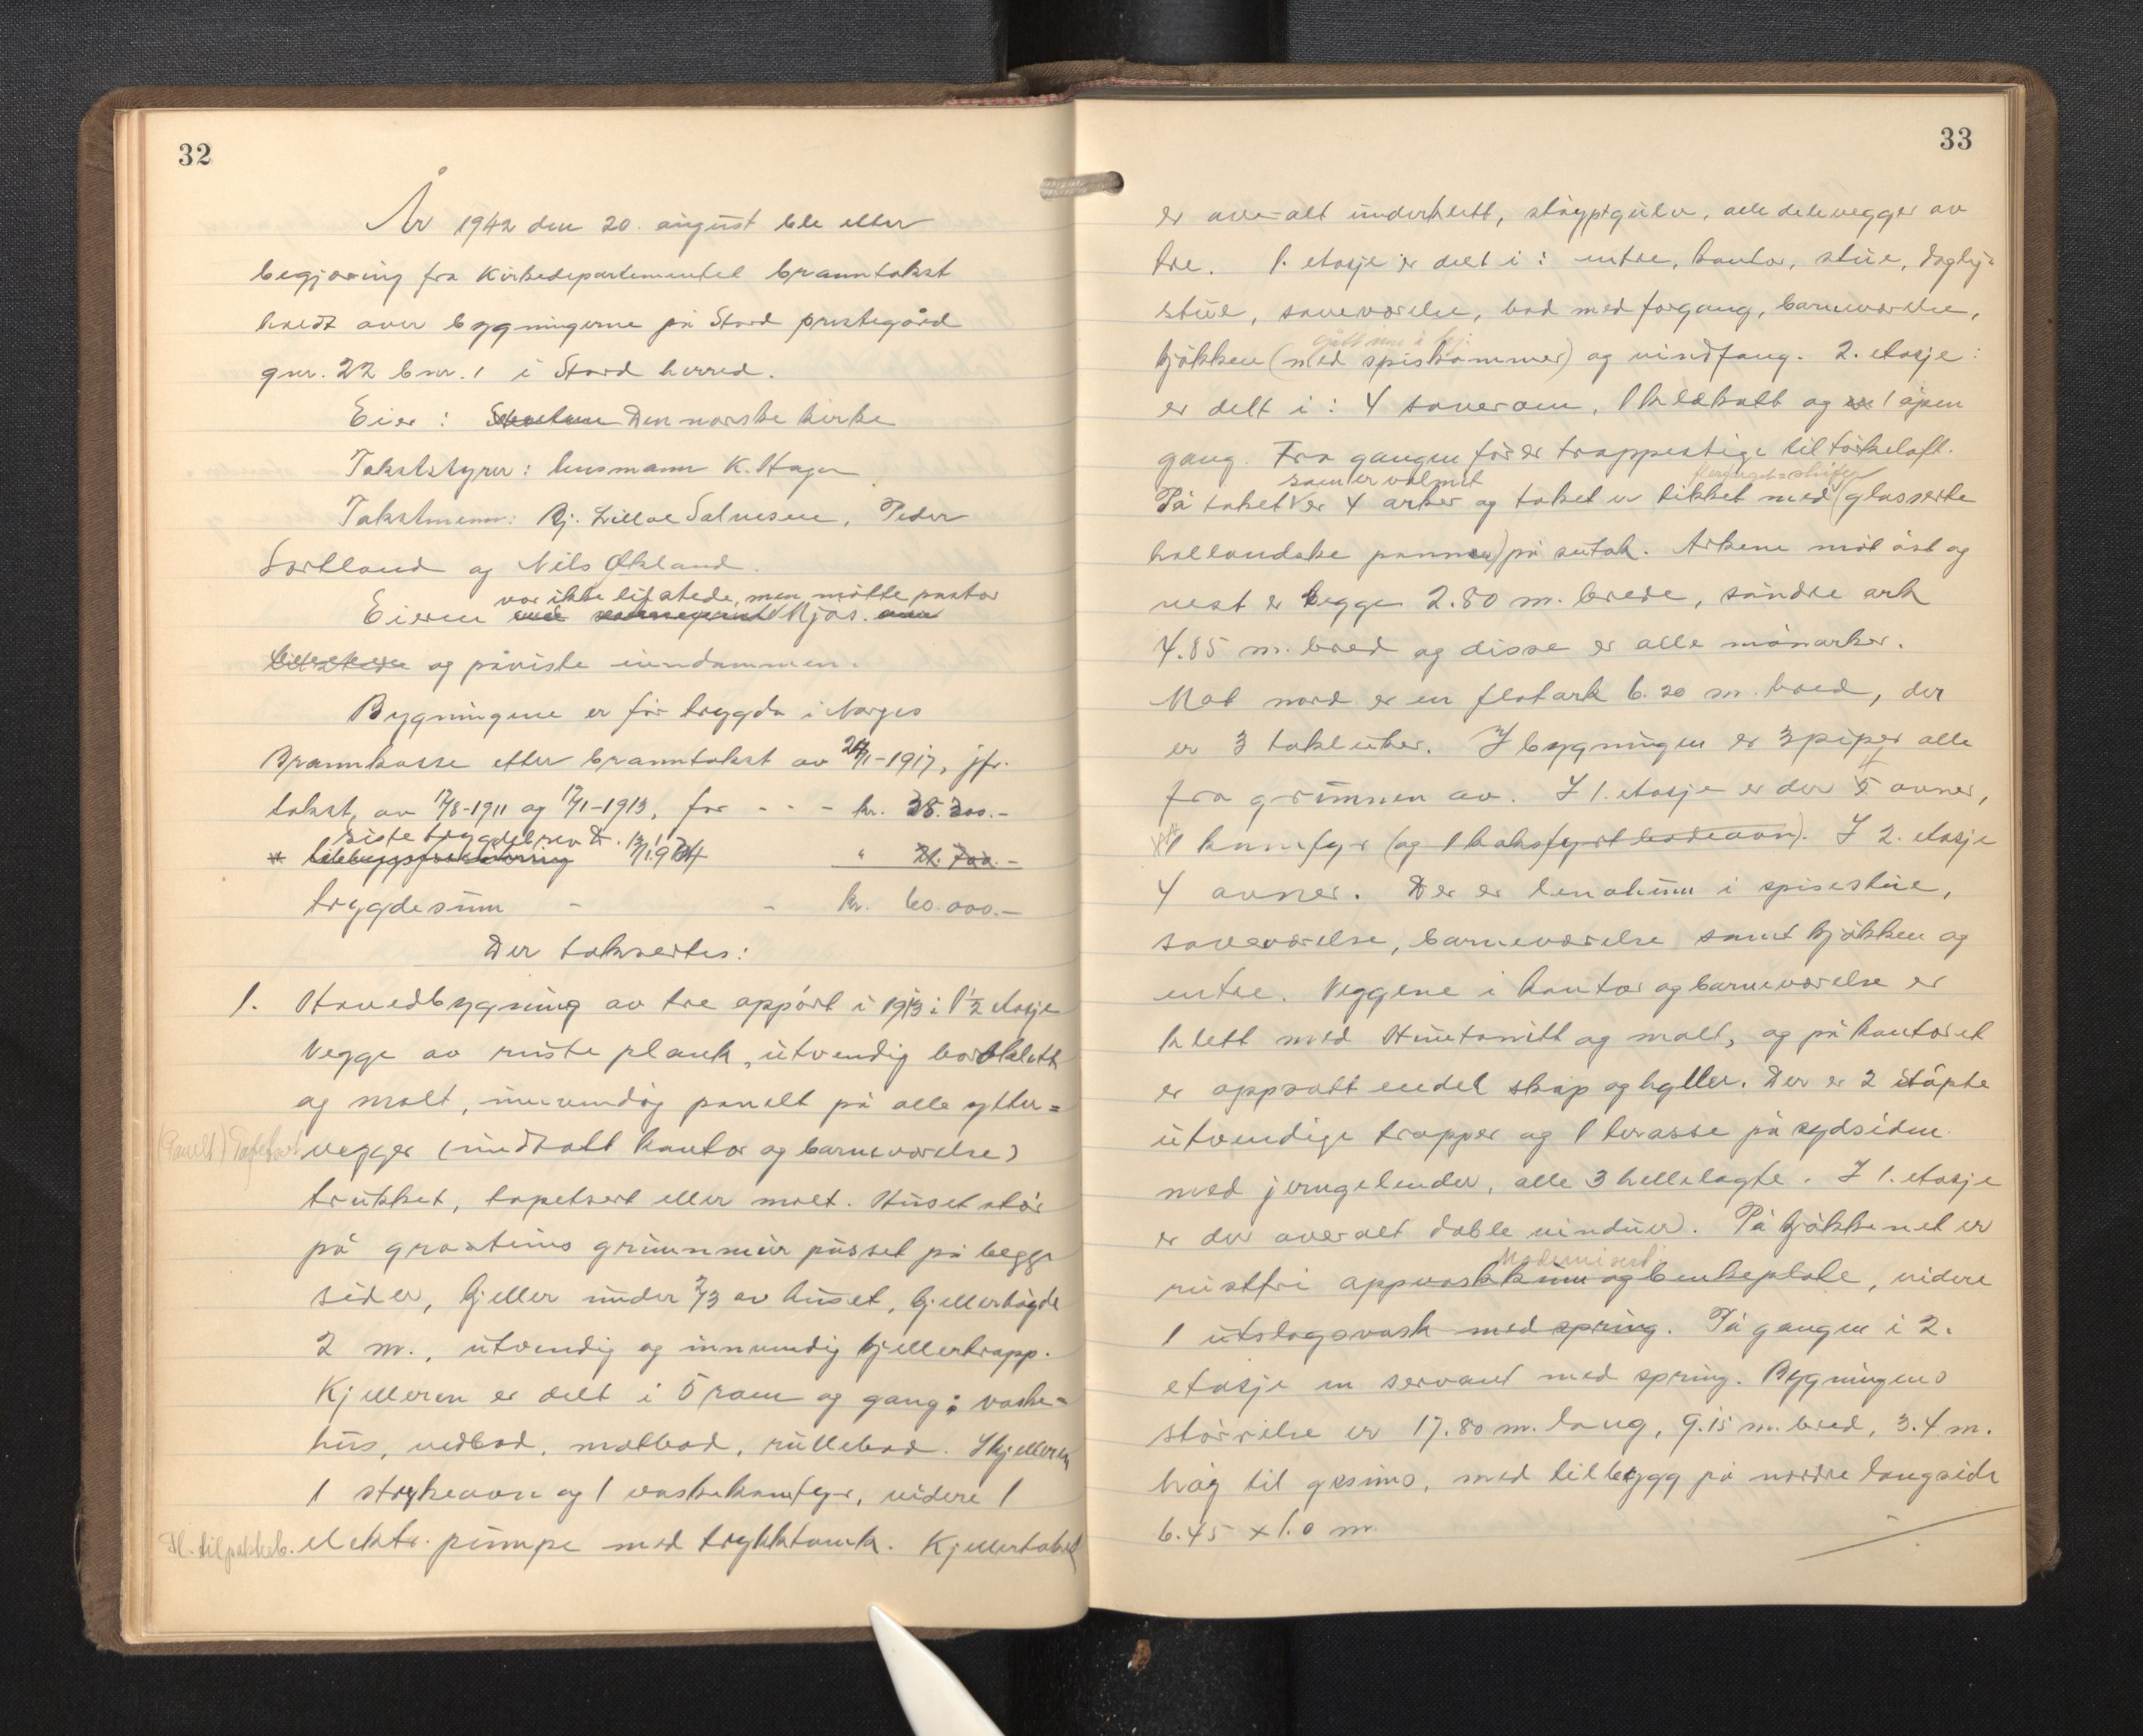 32
År 1942 den 20. august ble etter
begjæring fra Kirkedepartementet branntakst
holdt over bygningerne på Stord prestegård
gnr. 22 bnr. 1 i Stord herred.
Eier: Den norske kirke
Takststyrer: lensmann K. Hagen
Takstmenn: Bj. Lilloe Salvesen, Peder
Sortland og Nils Økland.
var ikke tilstede, men møtte pastor
Eieren Mjøs.
og påviste eiendommen.
Bygningene er før trygda i Norges
Brannkasse etter branntakst av 24/1-1917, jfr.
takst, av 17/8-1911 og 17/1-1913, for - - - kr. 38.300.-
siste trygdebrev D. 13/1 1934
* tilleggsforsikring " 21.700.-
trygdesum - - kr. 60.000.-
Der takseres:
1. Hovedbygning av tre oppført i 1913 i 1 1/2 etasje
Vegge av reiste plank, utvendig bordklett
og malt, innvendig panelt på alle ytter=
(Panelt) Tapetsert vegger (undtatt kontor og barneværelse)
trukket, tapetsert eller malt. Huset står
på gråsteins grunnmur pusset på begge
sider, kjeller under 2/3 av huset, kjellerhøgde
2 m., utvendig og innvendig kjellertrapp.
Kjelleren er delt i 5 rom og gang: vaske=
hus, vedbod, matbod, rullebod. I kjelleren
1 strykeovn og 1 vaskekomfyr, videre 1
elektr. pumpe med trykktank. Kjellertaket
33
er overalt underklett, støyptgulv, alle delevegger av
tre. 1. etasje er delt i: entre, kontor, stue, daglig=
stue, soveværelse, bad med forgang, barneværelse,
gått inn i kj.
kjøkken (med spiskammer) og vindfang. 2. etasje:
er delt i: 4 soverom, 1 klekott og 1 åpen
gang. Fra gangen fører trappestige til tørkeloft.
som er valmet
På taket er 4 arker og taket er tekket med (glasserte
hollandske panner) på sutak. Arkene mot øst og
vest er begge 2.80 m. brede, søndre ark
4.85 m. bred og disse er alle mønarker.
Mot nord er en flatark 6.20 m. bred, der
er 3 takluker. I bygningen er 3 piper alle
fra grunnen av. I 1. etasje er der 5 ovner,
1 komfyr (og 1 koksfyrt badeovn). I 2. etasje
4 ovner. Der er lenoleum i spisestue,
soveværelse, barneværelse samt kjøkken og
entre. Veggene i kontor og barneværelse er
klett med Huntonitt og malt, og på kontoret
er oppsatt endel skap og hyller. Der er 2 støpte
utvendige trapper og 1 terasse på sydsiden
med jerngelender, alle 3 hellelagte. I 1. etasje
er der overalt doble vinduer. På kjøkkenet er
Modernisert
rustfri oppvaskkum og benkeplate, videre
1 utslagsvask med spring. På gangen i 2.
etasje en servant med spring. Bygningens
størrelse er 17.80 m. lang, 9.15 m. bred, 3.4 m.
høg til gesims, med tilbygg på nordre langside
6.45 x 1.0 m.